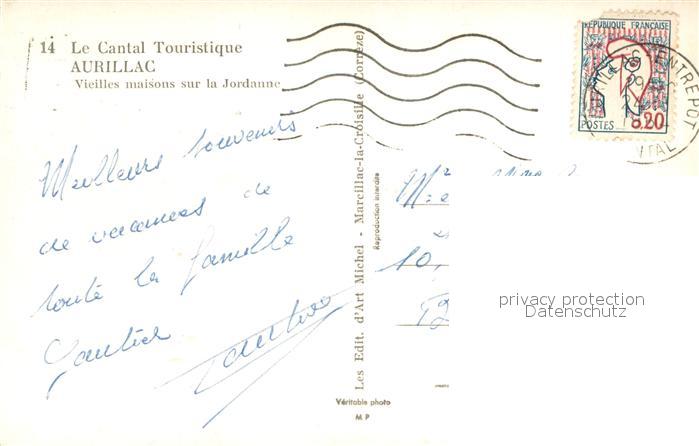 14 Le Cantal Touristique
AURILLAC
Vieilles maisons sur la Jordanne
Meilleurs souvenirs
de vacances de
toute la famille
Gautier
Les Edit. d'Art Michel - Marcillac-la-Croisille (Corrèze)
Reproduction interdite
REPUBLIQUE FRANÇAISE
POSTES 0.20
ENTREPOT
10,
privacy protection
Datenschutz
Véritable photo
M P